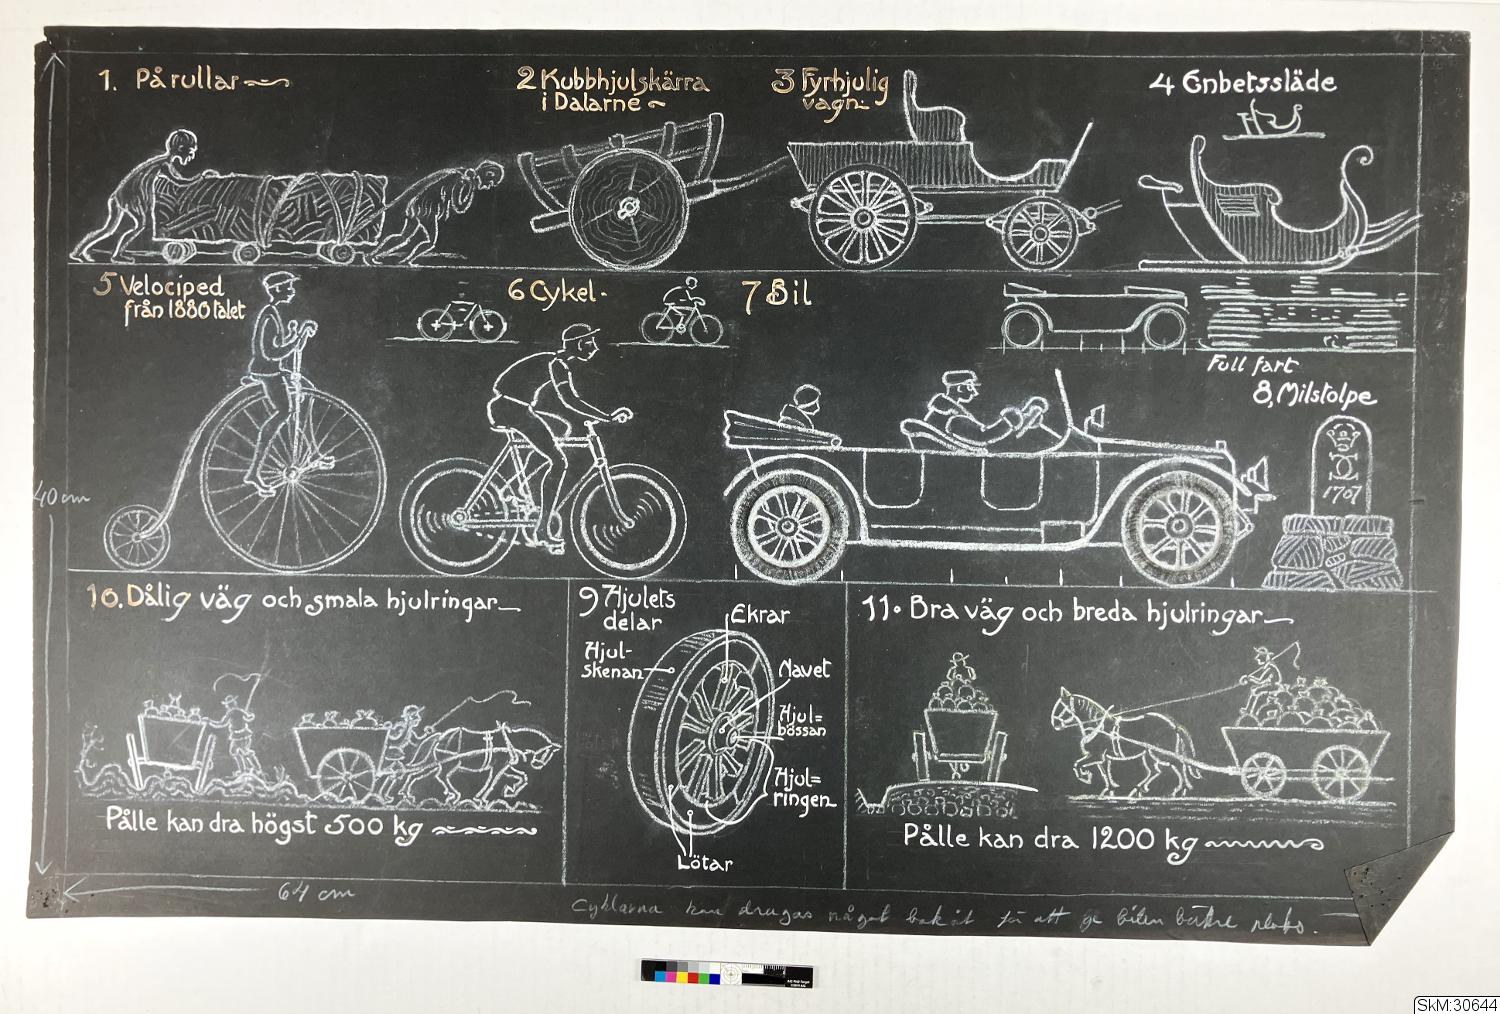 1. På rullar
2 Kubbhjulskärra
i Dalarne
3 Fyrhjulig
vagn
4 Enbetssläde
5 Velociped
från 1880 talet
6 Cykel.
7 Bil
Full fart
8, Milstolpe
1707
40 cm
10. Dålig väg och smala hjulringar
9 Hjulets
delar
Ekrar
Hjul-
skenan
Navet
Hjul=
bössan
Hjul=
ringen
Lötar
11. Bra väg och breda hjulringar
Pålle kan dra högst 500 kg
Pålle kan dra 1200 kg
64 cm
Cyklarna kan dragas något bakåt för att ge bilen bättre plats.
SkM:30644